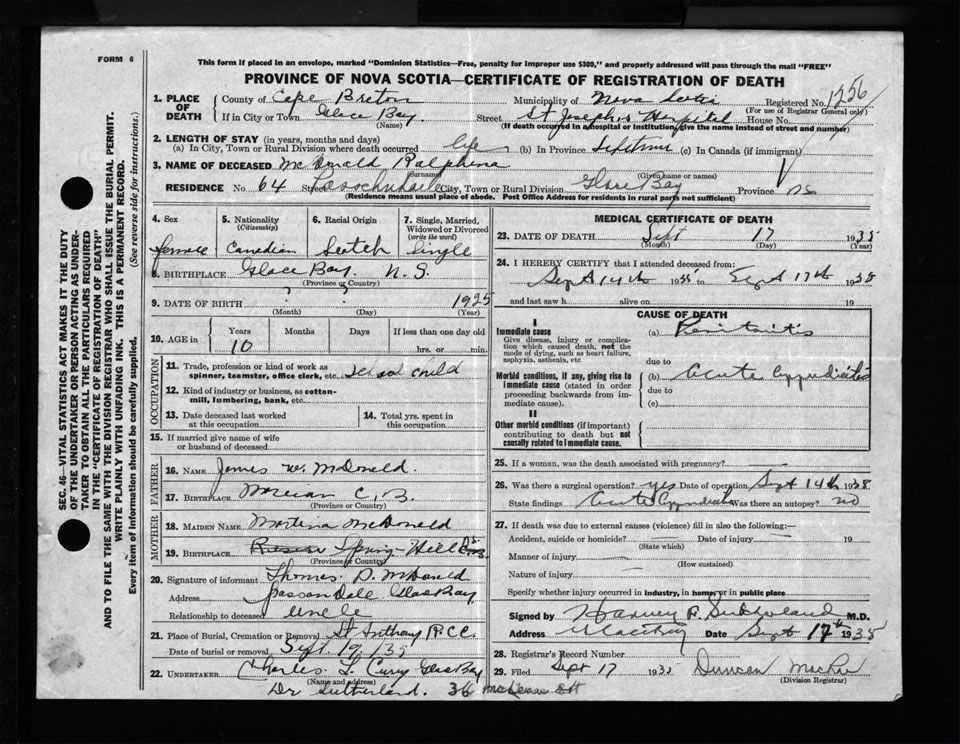 FORM 6
This form if placed in an envelope, marked "Dominion Statistics—Free, penalty for improper use $300," and properly addressed will pass through the mail "FREE"
PROVINCE OF NOVA SCOTIA—CERTIFICATE OF REGISTRATION OF DEATH
1. PLACE OF DEATH
County of Cape Breton Municipality of Nova Scotia Registered No. 1256
(For use of Registrar General only)
If in City or Town Glace Bay. Street St Joseph's Hospital House No.
(Name) (If death occurred in a hospital or institution, give the name instead of street and number)
2. LENGTH OF STAY (in years, months and days)
(a) In City, Town or Rural Division where death occurred life (b) In Province lifetime (c) In Canada (if immigrant)
3. NAME OF DECEASED McDonald Ralphena
(Surname) (Given name or names)
RESIDENCE No. 64 Street City, Town or Rural Division Glace Bay Province NS
(Residence means usual place of abode. Post Office Address for residents in rural parts not sufficient)
4. Sex
female
5. Nationality
(Citizenship)
Canadian
6. Racial Origin
Scotch
7. Single, Married, Widowed or Divorced
(write the word)
Single
8. BIRTHPLACE Glace Bay. N.S.
(Province or Country)
9. DATE OF BIRTH ? ? 1925
(Month) (Day) (Year)
10. AGE in
Years Months Days If less than one day old
10 hrs. or min.
OCCUPATION
11. Trade, profession or kind of work as spinner, teamster, office clerk, etc. School child
12. Kind of industry or business, as cotton-mill, lumbering, bank, etc.
13. Date deceased last worked at this occupation
14. Total yrs. spent in this occupation
15. If married give name of wife or husband of deceased
FATHER
16. NAME James W. McDonald.
17. BIRTHPLACE C.B.
(Province or Country)
MOTHER
18. MAIDEN NAME Martina McDonald
19. BIRTHPLACE Spring-Hill
(Province or Country)
20. Signature of informant Thomas D. McDonald
Address Passendale Glace Bay
Relationship to deceased Uncle
21. Place of Burial, Cremation or Removal St Anthony R.C.C.
Date of burial or removal Sept. 19/35
22. UNDERTAKER Charles L. Curry Glace Bay
(Name and address)
Dr Sutherland. 36 McLean St
MEDICAL CERTIFICATE OF DEATH
23. DATE OF DEATH Sept 17 1935
(Month) (Day) (Year)
24. I HEREBY CERTIFY that I attended deceased from:
Sept 14th 1935 to Sept 17th 1935
and last saw h alive on 19
CAUSE OF DEATH
I
Immediate cause
Give disease, injury or complication which caused death, not the mode of dying, such as heart failure, asphyxia, asthenia, etc.
(a) Peritonitis
due to
Morbid conditions, if any, giving rise to immediate cause (stated in order proceeding backwards from immediate cause).
(b) Acute Appendicitis
due to
(c)
II
Other morbid conditions (if important) contributing to death but not causally related to immediate cause.
25. If a woman, was the death associated with pregnancy?
26. Was there a surgical operation? yes Date of operation Sept 14th 1935
State findings Acute Appendicitis Was there an autopsy? no
27. If death was due to external causes (violence) fill in also the following:—
Accident, suicide or homicide? Date of injury 19
(State which)
Manner of injury
(How sustained)
Nature of injury
Specify whether injury occurred in industry, in home, or in public place
Signed by Harvey F. Sutherland M.D.
Address Glace Bay Date Sept 17th 1935
28. Registrar's Record Number
29. Filed Sept 17 1935 Duncan
(Division Registrar)
SEC. 46—VITAL STATISTICS ACT MAKES IT THE DUTY
OF THE UNDERTAKER OR PERSON ACTING AS UNDER-
TAKER TO OBTAIN ALL THE PARTICULARS REQUIRED
IN THE "CERTIFICATE OF REGISTRATION OF DEATH"
AND TO FILE THE SAME WITH THE DIVISION REGISTRAR WHO SHALL ISSUE THE BURIAL PERMIT.
WRITE PLAINLY WITH UNFADING INK. THIS IS A PERMANENT RECORD.
Every item of information should be carefully supplied. (See reverse side for instructions.)